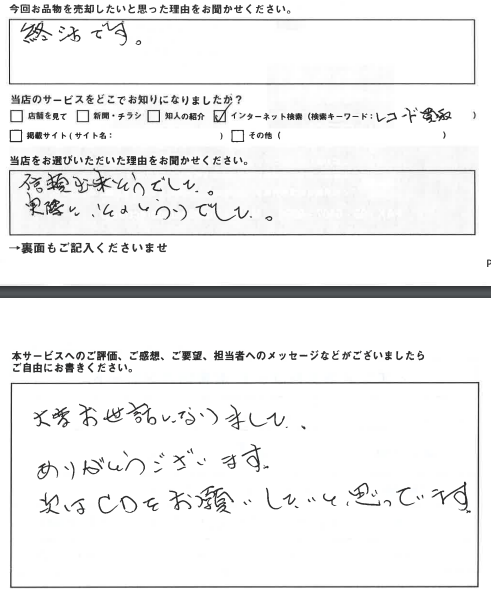 今回お品物を売却したいと思った理由をお聞かせください。
終活です。
当店のサービスをどこでお知りになりましたか？
店舗を見て 新聞・チラシ 知人の紹介 インターネット検索（検索キーワード：レコード買取 ）
掲載サイト（サイト名： ） その他（ ）
当店をお選びいただいた理由をお聞かせください。
信頼出来そうでした。
実際に、そのとうりでした。
→裏面もご記入くださいませ
P
本サービスへのご評価、ご感想、ご要望、担当者へのメッセージなどがございましたら
ご自由にお書きください。
大変お世話になりました、
ありがとうございます。
次はCDをお願いしたいと思っています。